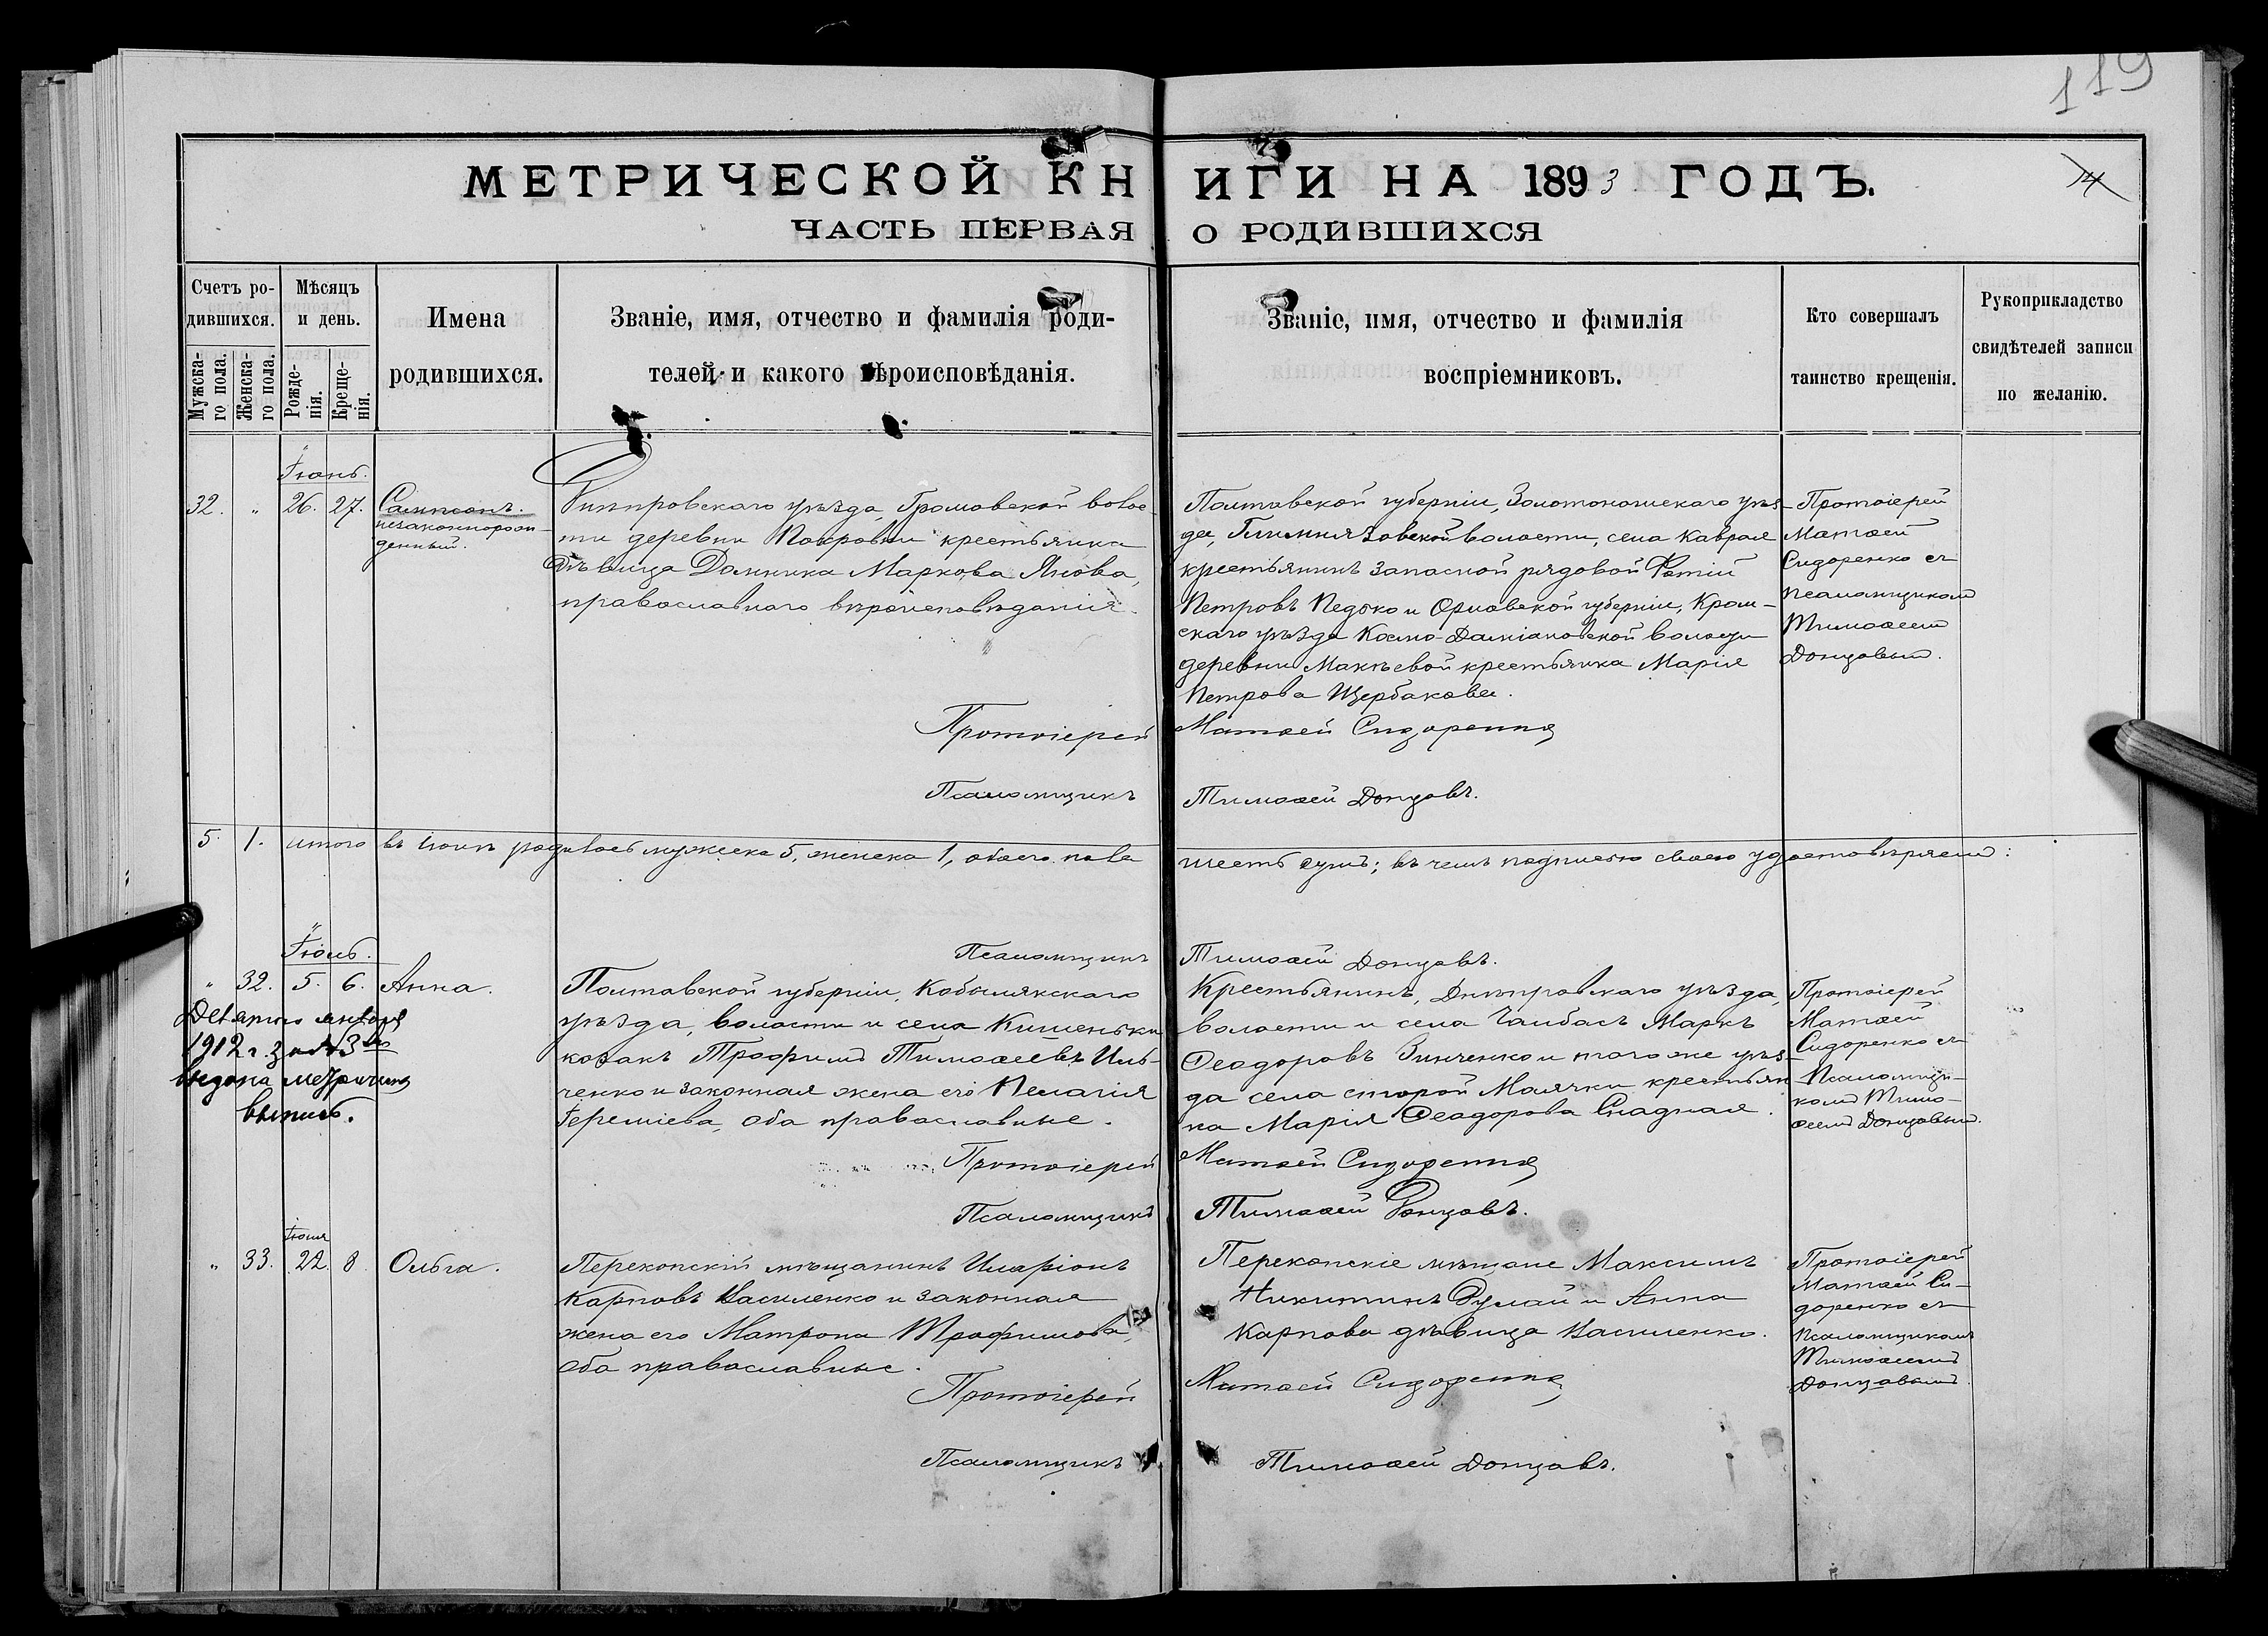 119
МЕТРИЧЕСКОЙ КНИГИ НА 1893 ГОДЪ.
14
ЧАСТЬ ПЕРВАЯ О РОДИВШИХСЯ
Счетъ ро-
дившихся.
Мужска-
го пола.
Женска-
го пола.
Мѣсяцъ
и день.
Рожде-
нія.
Креще-
нія.
Имена
родившихся.
Званіе, имя, отчество и фамилія роди-
телей и какого вѣроисповѣданія.
Званіе, имя, отчество и фамилія
воспріемниковъ.
Кто совершалъ
таинство крещенія.
Рукоприкладство
свидѣтелей записи
по желанію.
Іюнь.
32. " 26. 27. Сампсонъ.
незаконнорож-
денный.
Днѣпровскаго уѣзда, Громовской волос-
ти деревни Покровки крестьянка
дѣвица Домника Маркова Янова,
православнаго вѣроисповѣданія.
Полтавской губерніи, Золотоношскаго уѣз-
да, волости, села Каврая
крестьянинъ запасной рядовой Фотій
Петровъ Педько и Орловской губерніи, Кром-
скаго уѣзда Космо-Даміановской волости
деревни Макѣевой крестьянка Марія
Петрова Щербакова.
Протоіерей
Матѳей
Сидоренко съ
псаломщикомъ
Тимоѳеемъ
Донцовымъ.
Протоіерей Матѳей Сидоренко
Псаломщикъ Тимоѳей Донцовъ.
5. 1. итого въ іюнѣ родилось мужеска 5, женска 1, обоего пола шесть душъ; въ чемъ подписью своею удостовѣряемъ:
Псаломщикъ Тимоѳей Донцовъ.
Іюль.
" 32. 5. 6. Анна.
Девятого января
1912 г. за № 3
выдана метрична
выпись.
Полтавской губерніи, Кобылякскаго
уѣзда, волости и села Кишеньки
козакъ Трофимъ Тимоѳеевъ Иль-
ченко и законная жена его Пелагія
Іереміева, оба православные.
Крестьянинъ, Днѣпровскаго уѣзда,
волости и села Чалбасъ Маркъ
Ѳеодоровъ Зинченко и того же уѣз-
да села старой Маячки крестьян-
ка Марія Ѳеодорова Сладкая.
Протоіерей
Матѳей
Сидоренко съ
Псаломщи-
комъ Тимо-
ѳеемъ Донцовымъ.
Протоіерей Матѳей Сидоренко
Псаломщикъ Тимоѳей Донцовъ.
Іюня
" 33. 22. 8. Ольга.
Перекопскій мѣщанинъ Иларіонъ
Карповъ Василенко и законная
жена его Матрона Трофимова,
оба православные.
Перекопскіе мѣщане Максимъ
Никитинъ Дулай и Анна
Карпова дѣвица Василенко.
Протоіерей
Матѳей Си-
доренко съ
псаломщикомъ
Тимоѳеемъ
Донцовымъ.
Протоіерей Матѳей Сидоренко
Псаломщикъ Тимоѳей Донцовъ.